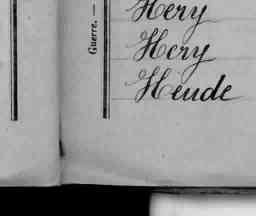 Guerre. —
Hery
Hery
Heude